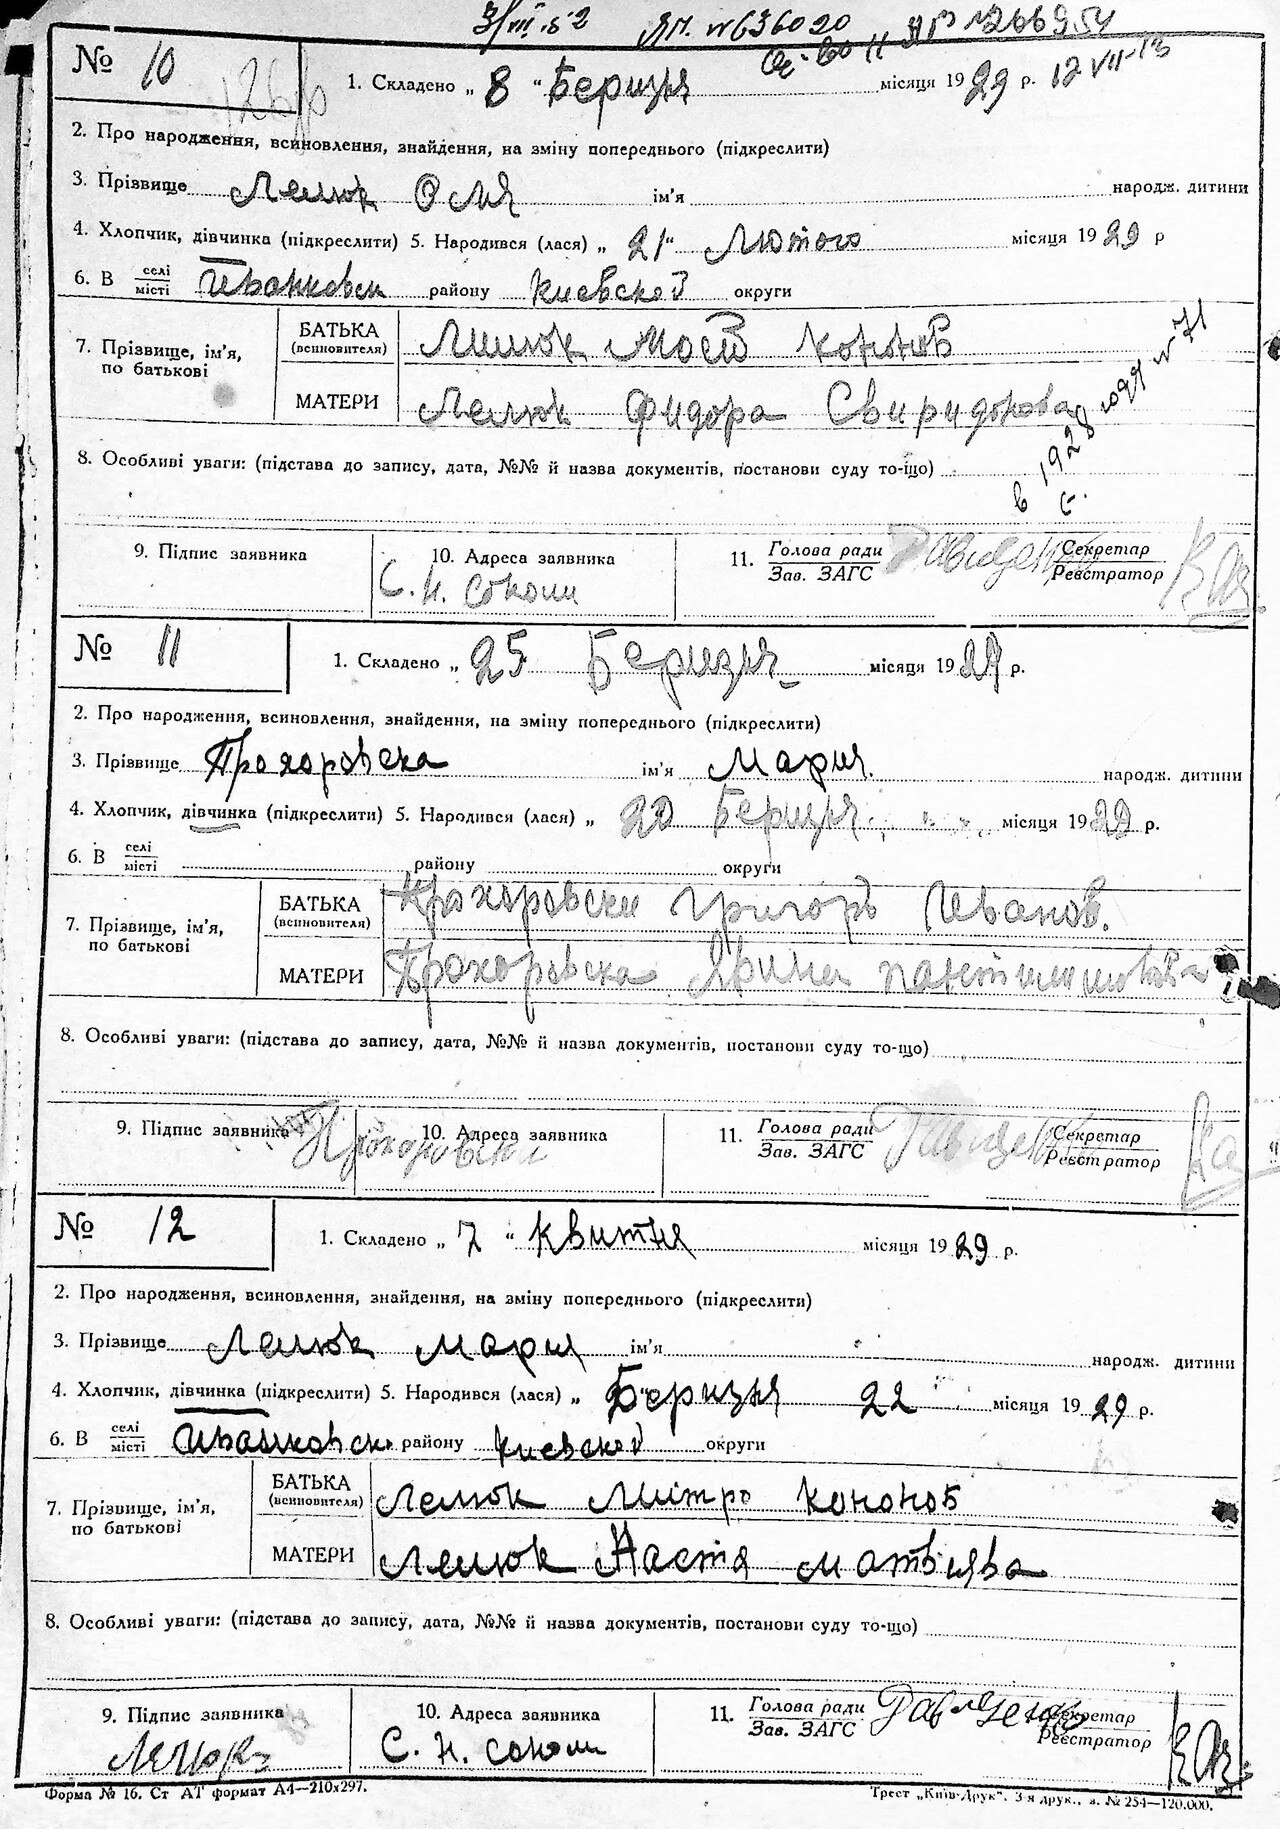 3/VII 52 ЯП. №636020 ЯР №266954
№ 10
1. Складено „ 8 “ Беризня місяця 1929 р. 12 VII-
2. Про народження, всиновлення, знайдення, на зміну попереднього (підкреслити)
3. Прізвище Лелюк Оля ім'я народж. дитини
4. Хлопчик, дівчинка (підкреслити) 5. Народився (лася) „ 21 “ Лютого місяця 1929 р
6. В селі/місті Иванковск району Киевской округи
7. Прізвище, ім'я, по батькові
БАТЬКА (всиновителя) Лилюк Мосій Кононів
МАТЕРИ Лелюк Фидора Свиридонова
в 1928 году № 71
8. Особливі уваги: (підстава до запису, дата, №№ й назва документів, постанови суду то-що)
9. Підпис заявника
10. Адреса заявника
С. Н. Соколи
11. Голова ради/Зав. ЗАГС Давиденко Секретар/Реєстратор
№ 11
1. Складено „ 25 Беризня місяця 1929 р.
2. Про народження, всиновлення, знайдення, на зміну попереднього (підкреслити)
3. Прізвище Прохоровска ім'я Мария. народж. дитини
4. Хлопчик, дівчинка (підкреслити) 5. Народився (лася) „ 20 Беризня місяця 1929 р.
6. В селі/місті району округи
7. Прізвище, ім'я, по батькові
БАТЬКА (всиновителя) Прохоровски Григорь Иванов.
МАТЕРИ Прохоровска Ярина
8. Особливі уваги: (підстава до запису, дата, №№ й назва документів, постанови суду то-що)
9. Підпис заявника Прохоровски
10. Адреса заявника
11. Голова ради/Зав. ЗАГС Давиденко Секретар/Реєстратор
№ 12
1. Складено „ 7 “ Квитня місяця 1929 р.
2. Про народження, всиновлення, знайдення, на зміну попереднього (підкреслити)
3. Прізвище Лелюк Мария ім'я народж. дитини
4. Хлопчик, дівчинка (підкреслити) 5. Народився (лася) „ Беризня 22 місяця 1929 р.
6. В селі/місті Иванковско району Киевской округи
7. Прізвище, ім'я, по батькові
БАТЬКА (всиновителя) Лелюк Митро Кононов
МАТЕРИ Лелюк Настя Матвиява
8. Особливі уваги: (підстава до запису, дата, №№ й назва документів, постанови суду то-що)
9. Підпис заявника
Лелюк
10. Адреса заявника
С. Н. Соколи
11. Голова ради/Зав. ЗАГС Давиденко Секретар/Реєстратор
Форма № 16. Ст АТ формат А4—210x297.
Трест „Київ-Друк“. 3-я друк., з. № 254—120.000.